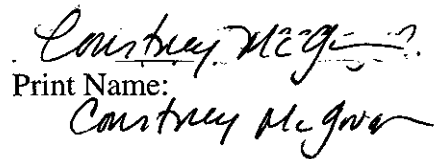 Courtney McG
Print Name:
Courtney McGovern